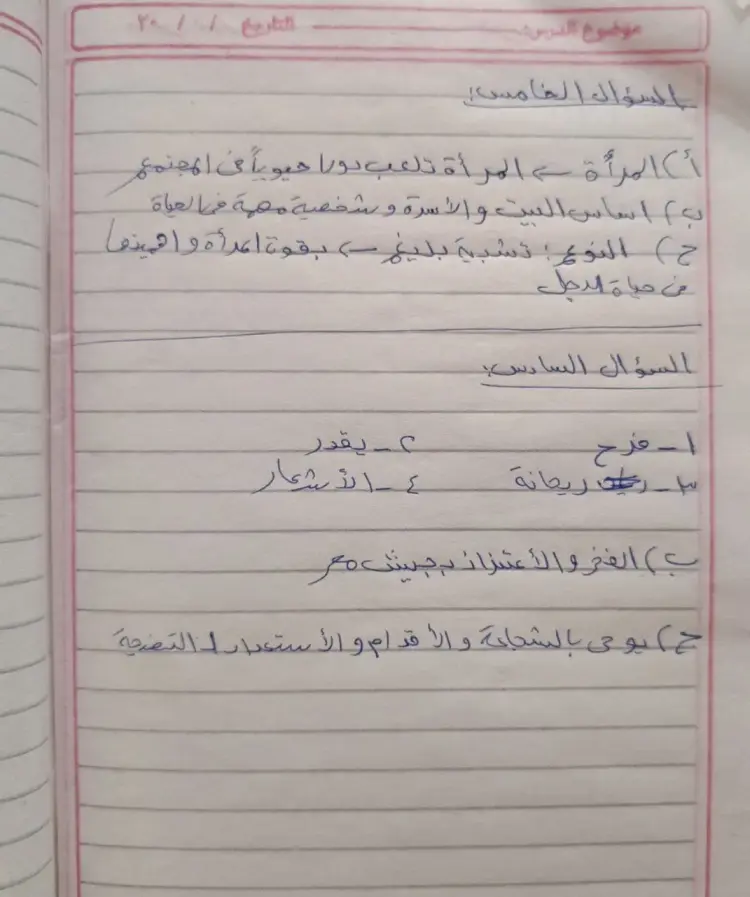 موضوع الدرس: التاريخ / / ٢٠
السؤال الخامس:
أ) المرأة ← المرأة تلعب دورا حيوياً في المجتمع
ب) اساس البيت والأسرة وشخصية مهمة في الحياة
ج) النوع: تشبية بليغ ← بقوة المرأة واهميتها
في حياة الرجل
السؤال السادس:
١ - فرح ٢ - يقدر
٣ - ريحانة ٤ - الأشعار
ب) الفخر والأعتزاز بجيش مصر
ج) يوحى بالشجاعة والأقدام والأستعداد لـ التضحية